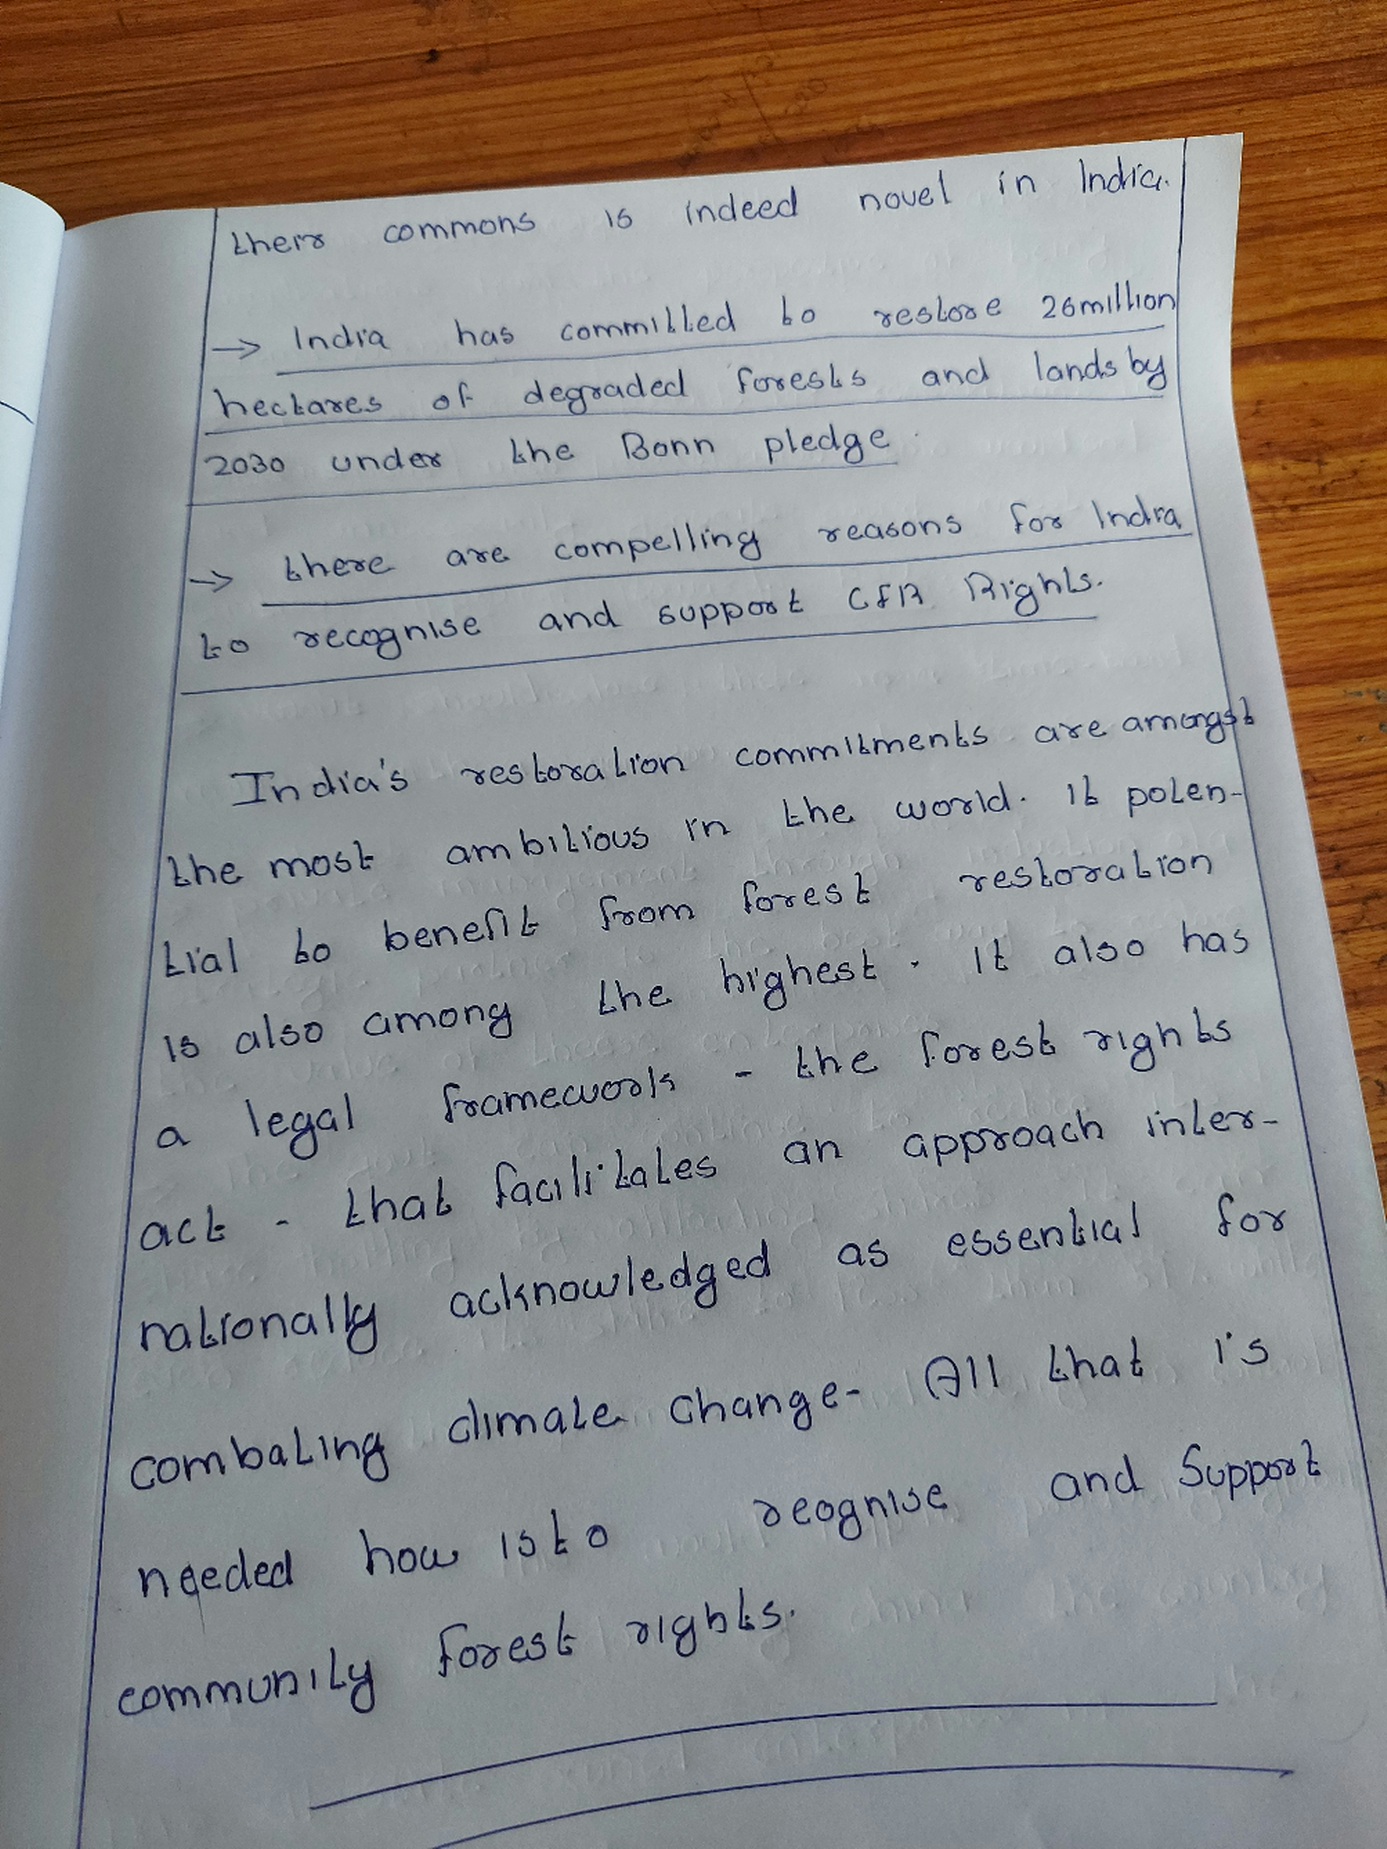 their commons is indeed novel in India.
→ India has committed to restore 26million
hectares of degraded forests and lands by
2030 under the Bonn pledge.
→ there are compelling reasons for India
to recognise and support CFR Rights.
India's restoration commitments are amongst
the most ambitious in the world. It poten-
tial to benefit from forest restoration
is also among the highest. It also has
a legal framework - the forest rights
act - that facilitates an approach inter-
nationally acknowledged as essential for
combating climate change- All that is
needed how is to reognise and Support
community forest rights.